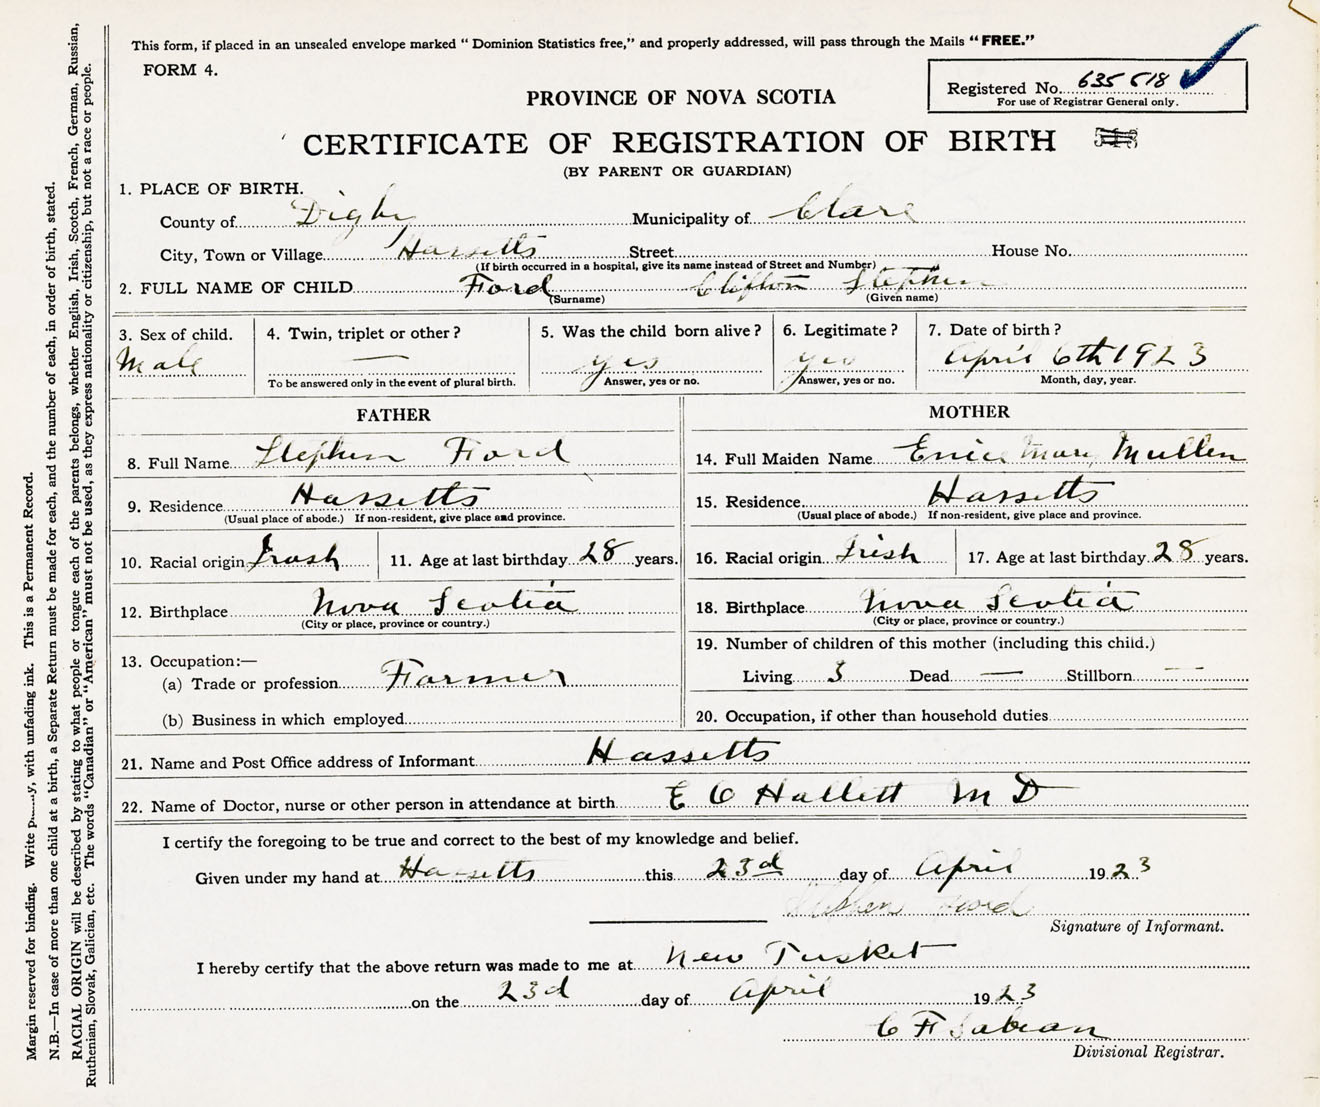 This form, if placed in an unsealed envelope marked " Dominion Statistics free," and properly addressed, will pass through the Mails " FREE."
FORM 4.
Registered No. 635 618
For use of Registrar General only.
PROVINCE OF NOVA SCOTIA
CERTIFICATE OF REGISTRATION OF BIRTH
(BY PARENT OR GUARDIAN)
1. PLACE OF BIRTH.
County of Digby Municipality of Clare
City, Town or Village Hassetts Street House No.
(If birth occurred in a hospital, give its name instead of Street and Number)
2. FULL NAME OF CHILD Ford Clifton Stephen
(Surname) (Given name)
3. Sex of child. 4. Twin, triplet or other? 5. Was the child born alive? 6. Legitimate? 7. Date of birth?
Male — yes yes April 6th 1923
To be answered only in the event of plural birth. Answer, yes or no. Answer, yes or no. Month, day, year.
FATHER
8. Full Name Stephen Ford
9. Residence Hassetts
(Usual place of abode.) If non-resident, give place and province.
10. Racial origin Irish 11. Age at last birthday 28 years.
12. Birthplace Nova Scotia
(City or place, province or country.)
13. Occupation:—
(a) Trade or profession Farmer
(b) Business in which employed
MOTHER
14. Full Maiden Name Mary Mullen
15. Residence Hassetts
(Usual place of abode.) If non-resident, give place and province.
16. Racial origin Irish 17. Age at last birthday 28 years.
18. Birthplace Nova Scotia
(City or place, province or country.)
19. Number of children of this mother (including this child.)
Living 3 Dead — Stillborn —
20. Occupation, if other than household duties
21. Name and Post Office address of Informant Hassetts
22. Name of Doctor, nurse or other person in attendance at birth E C Hallett M D
I certify the foregoing to be true and correct to the best of my knowledge and belief.
Given under my hand at Hassetts this 23d day of April 1923
Stephen Ford
Signature of Informant.
I hereby certify that the above return was made to me at New Tusket
on the 23d day of April 1923
C F Sabean
Divisional Registrar.
Margin reserved for binding. Write with unfading ink. This is a Permanent Record.
N.B.—In case of more than one child at a birth, a Separate Return must be made for each, and the number of each, in order of birth, stated.
RACIAL ORIGIN will be described by stating to what people or tongue each of the parents belongs, whether English, Irish, Scotch, French, German, Russian,
Ruthenian, Slovak, Galician, etc. The words "Canadian" or "American" must not be used, as they express nationality or citizenship, but not a race or people.